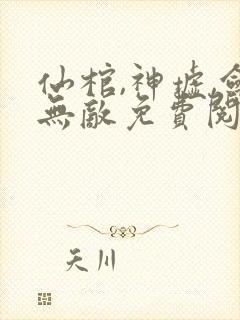 仙棺,神墟,劍
無敵免費閱
天川